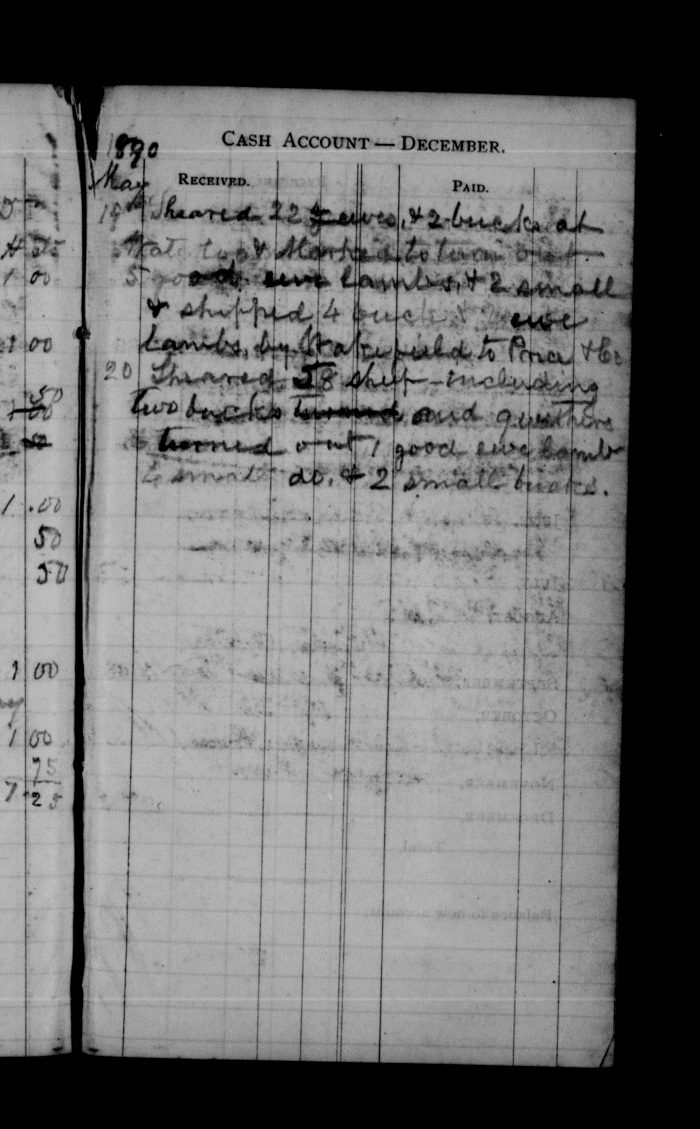 1890
CASH ACCOUNT — DECEMBER.
May
RECEIVED. PAID.
15th Sheared 22 ewes, & 2 bucks at
& Marked to turn out
5 good ewe lambs, & 2 small
& shipped 4 buck & 2 ewe
Lambs, by Wakefield to Price & Co
20 Sheared 58 sheep including
two bucks turned and
turned out 1 good ewe lamb
2 small do. & 2 small bucks.
4 25
1 00
1 00
50
1 00
1 .00
50
50
1 00
1 00
75
7 25